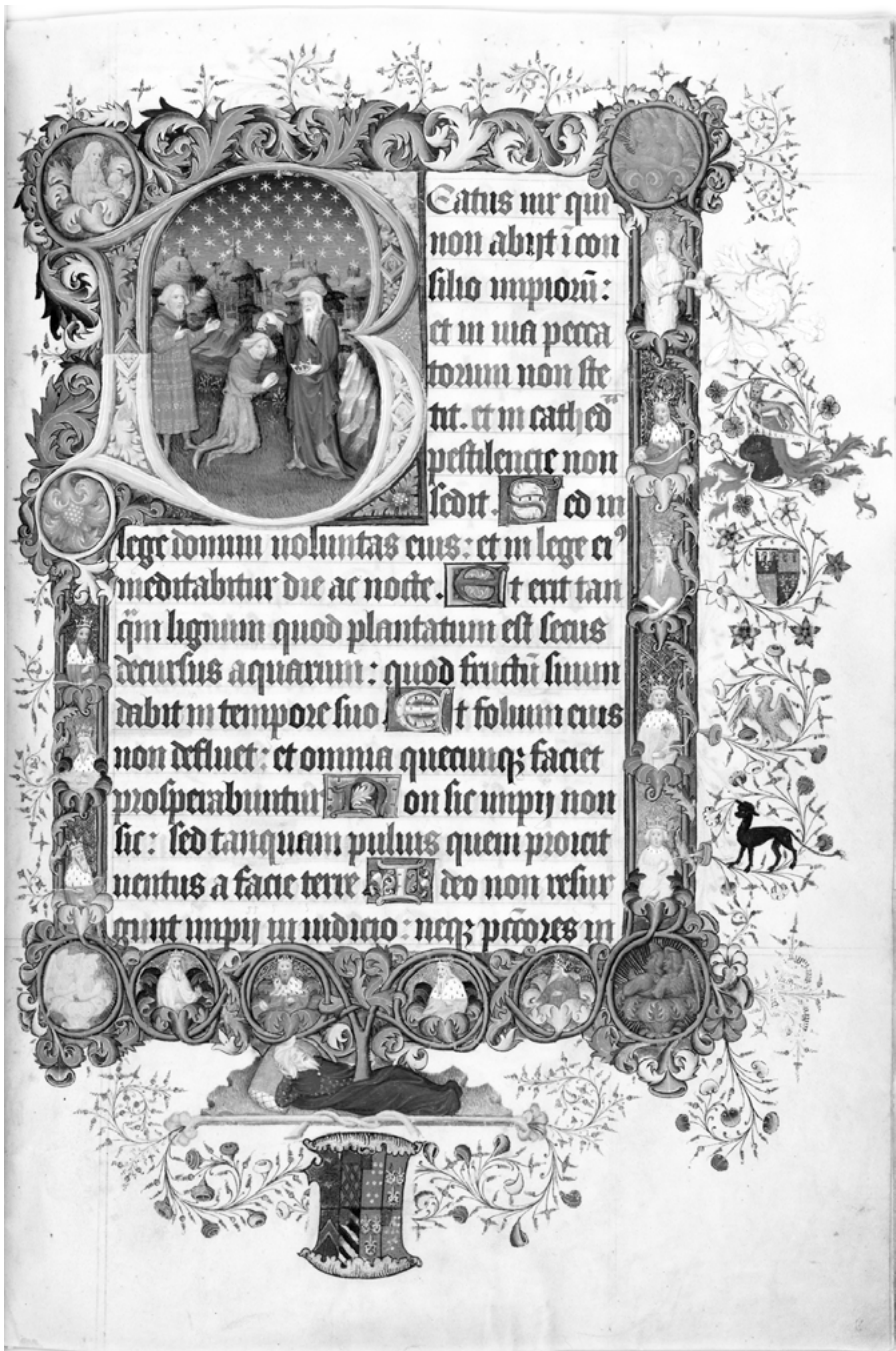 Beatus uir qui
non abijt i con
silio impioru̅:
et in uia pecca
torum non ste
tit. et in cathed
pestilencie non
sedit. Sed in
lege domini uoluntas eius: et in lege ei⁹
meditabitur die ac nocte. Et erit tan
q̅m lignum quod plantatum est secus
decursus aquarum: quod fructu̅ suum
dabit in tempore suo Et folium eius
non defluet: et omnia quecumqꝫ faciet
prosperabuntur Non sic impij non
sic: sed tanquam puluis quem proicit
uentus a facie terre Ideo non resur
gunt impij in iudicio: neqꝫ pc̅cores in